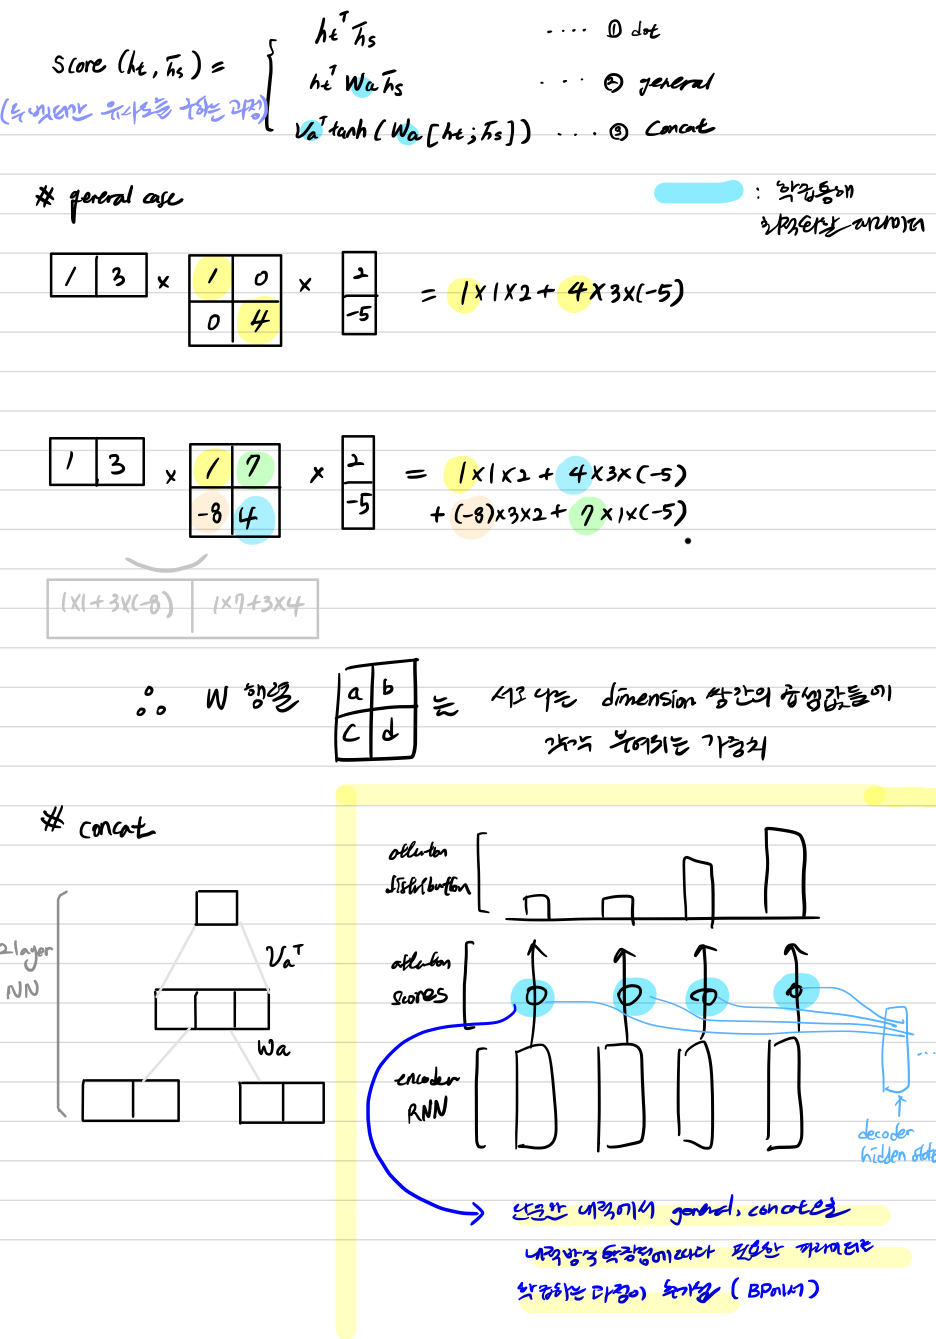 score (ht, h̄s) =
htᵀ h̄s ···· ① dot
htᵀ Wa h̄s ···· ② general
Vaᵀ tanh (Wa [ht ; h̄s]) ···· ③ concat
(두 벡터간 유사도를 구하는 과정)
# general case
: 학습통해
최적화할 파라미터
1 3 × 1 0 × 2 = 1×1×2 + 4×3×(-5)
0 4 -5
1 3 × 1 7 × 2 = 1×1×2 + 4×3×(-5)
-8 4 -5 + (-8)×3×2 + 7×1×(-5)
1×1+3×(-8) 1×7+3×4
∴ W 행렬 a b 는 서로 다른 dimension 쌍간의 곱셈값들에
c d 각각 부여되는 가중치
# concat
2 layer
NN
Vaᵀ
Wa
attention
distribution
attention
scores
encoder
RNN
decoder
hidden state
단순한 내적에서 general, concat으로
내적방식 확장됨에따라 필요한 파라미터도
학습하는 과정이 추가됨 (BP에서)